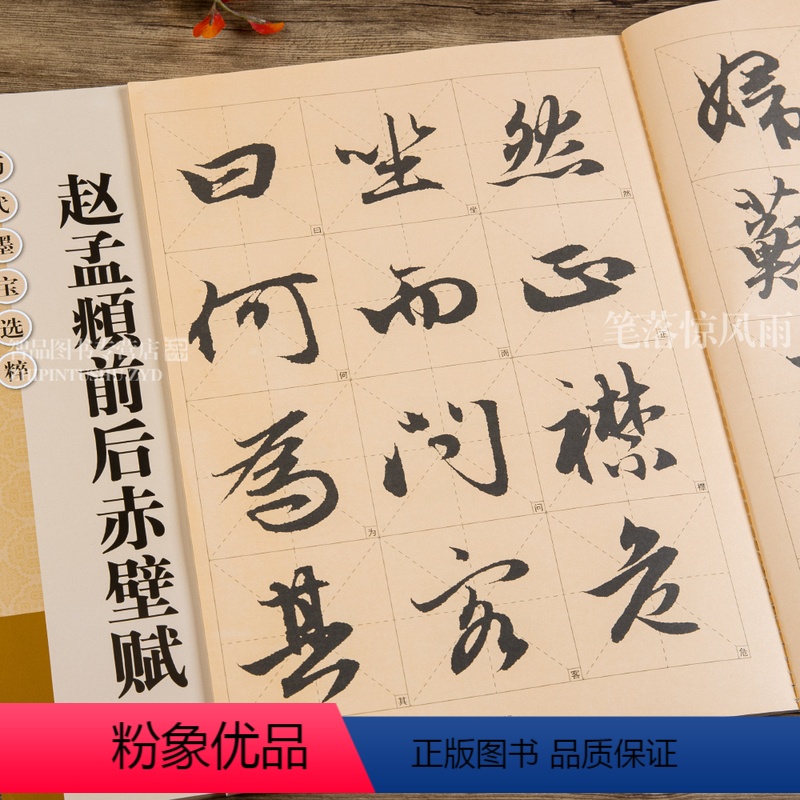 代墨宝选粹
赵孟頫前后赤壁赋
婦蘇
然正襟危
坐而問客
曰何為其
然
坐
曰
正
而
何
襟
问
为
危
客
其
笔落惊风雨
智品图书专营店
ZHIPINTUSHUZYD
粉象优品
正版图书 品质保证